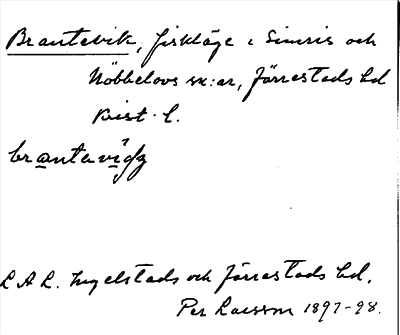 Brantevik, fiskläge i Simris och
Nöbbelövs sk:ar, Järrestads hd
Krist. l.
brantevig
L A L. Ingelstads och Järrestads hd.
Per Larsson 1897-98.